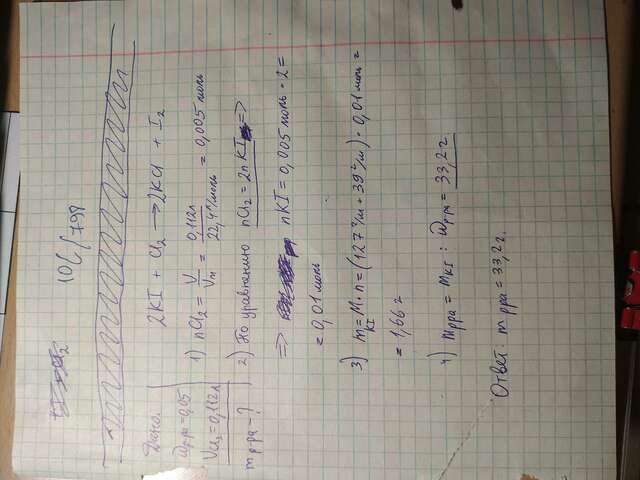 10С/798
Дано:
ωр-ра = 0,05
VCl₂ = 0,112л
mр-ра - ?
2KI + Cl₂ → 2KCl + I₂
1) nCl₂ = V/Vм = 0,112л/22,4л/моль = 0,005 моль
2) По уравнению nCl₂ = 2nKI =>
=> nKI = 0,005 моль · 2 =
= 0,01 моль
3) mKI = M · n = (127 г/м + 39 г/м) · 0,01 моль =
= 1,66 г
4) mр-ра = mKI : ωр-ра = 33,2 г.
Ответ: mр-ра = 33,2 г.